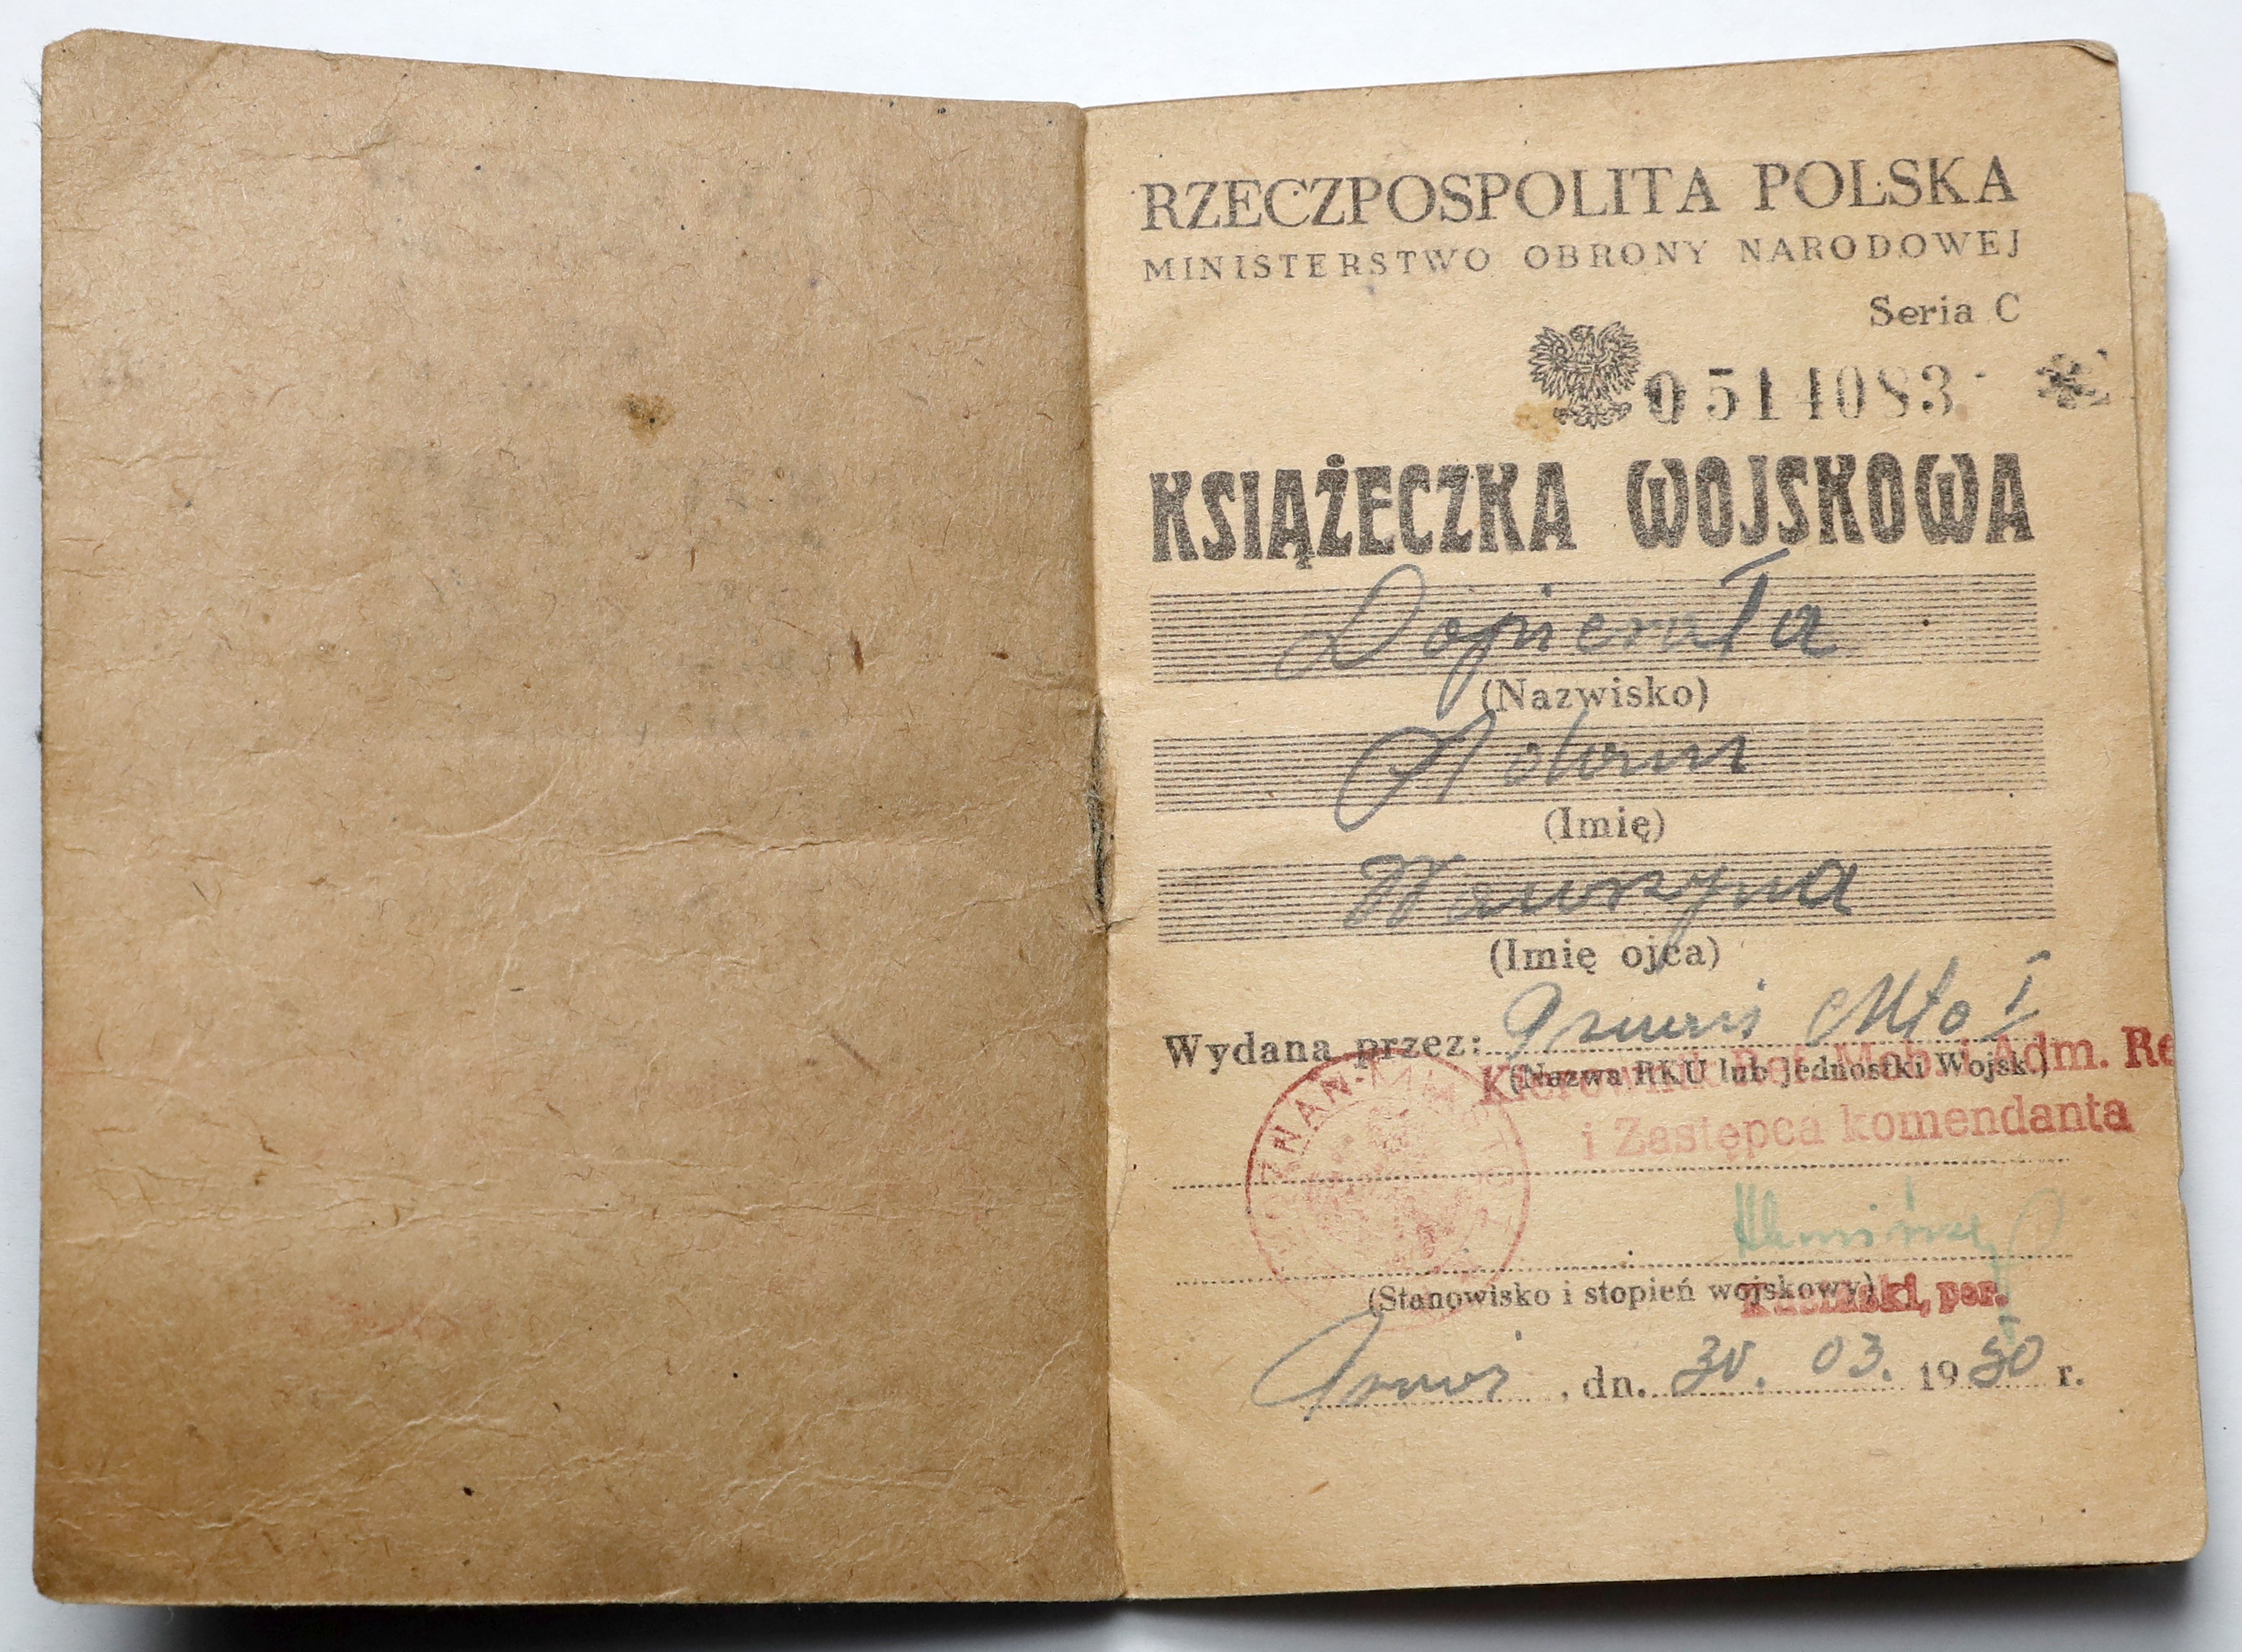 RZECZPOSPOLITA POLSKA
MINISTERSTWO OBRONY NARODOWEJ
Seria C
0514083
KSIĄŻECZKA WOJSKOWA
Dopierała
(Nazwisko)
Adam
(Imię)
Wawrzyna
(Imię ojca)
Wydana przez:
(Nazwa RKU lub jednostki Wojsk.)
Kierownik Mob. i Adm. Re
i Zastępca komendanta
(Stanowisko i stopień wojskowy)
por.
, dn. 30. 03. 1950 r.